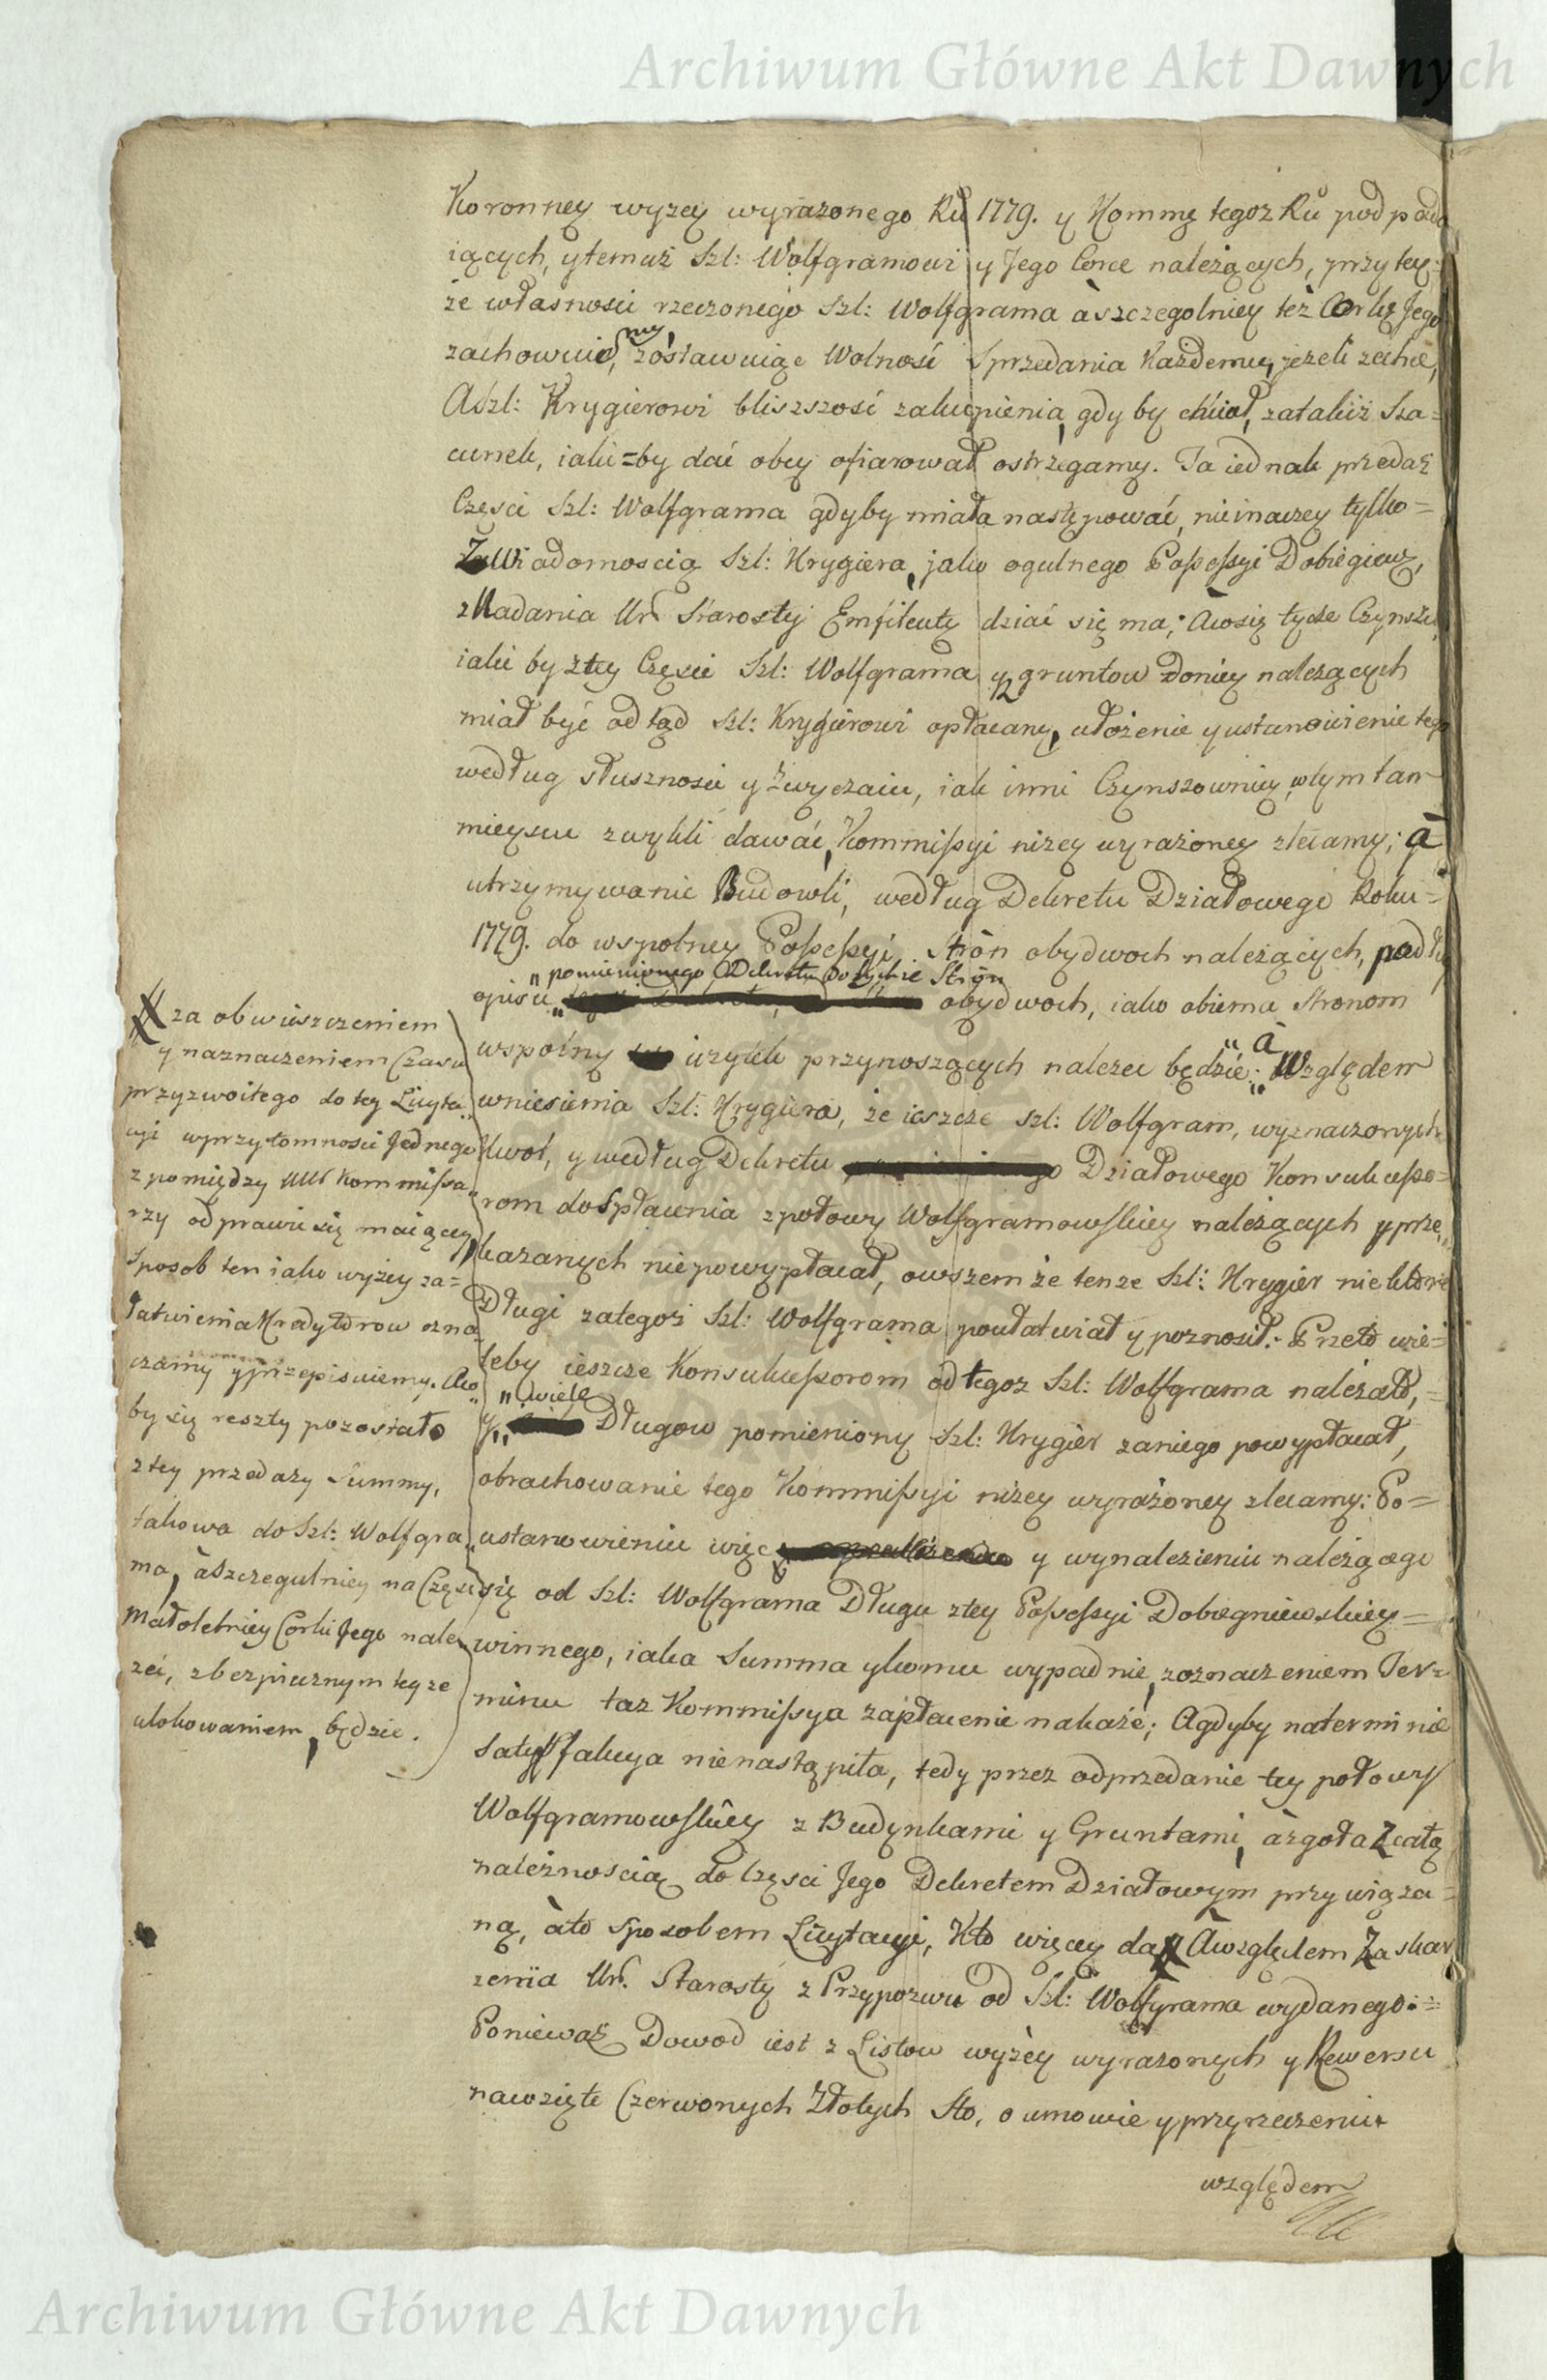 Archiwum Główne Akt Dawnych
Koronney wyzey wyrazonego Ru 1779. y Kommę tegoz Ru podpada
iących, y temuż Szl: Wolfgramowi y Jego Corce należących, przy tey
że własnosci rzeczonego Szl: Wolfgrama à szczegolniey też Corkę Jego
zachowuiemy, zostawuiąc Wolność Sprzedania Każdemu, jeżeli zechce,
A Szl: Krygierowi bliszszość zakupienia, gdy by chciał, za takiż Sza=
cunek, iaki=by dać obcy ofiarował ostrzegamy. Ta iednak przedaż
Części Szl: Wolfgrama gdyby miała następować, nie inaczey tylko=
Z Wiadomoscią Szl: Krygiera, jako ogulnego Possessyi Dobiegiew,
z Nadania Ur. Starosty Emfiteuty dziać się ma; A co się tycze Czynszu,
iaki by z tey Części Szl: Wolfgrama y z gruntow do niey należących
miał być odtąd Szl: Krygierowi opłacany, ułożenie y ustanowienie tego
według słusznosci y zwyczaiu, iak inni Czynszownicy w tym tam
mieyscu zwykli dawać, Kommissyi niżey wyrażoney zlecamy; à
utrzymywanie Budowli, według Dekretu Działowego Roku=
1779. do wspolney Possessyi Stròn obydwoch należących, podług
"pomienionego Dekretu do tychże Stròn
opisu " obydwoch, iako obiema Stronom
wspolny użytek przynoszących należeć będzie: "à Względem
wniesienia Szl: Krygiera, że ieszcze Szl: Wolfgram, wyznaczonych
kwot, y według Dekretu Działowego Konsukcesso=
rom do spłacenia z połowy Wolfgramowskiey należących y prze„
kazanych nie powypłacał, owszem że tenże Szl: Krygier niektore
Długi za tegoż Szl: Wolfgrama poułatwiał y poznosił: Przeto wie=
leby ieszcze Konsukcessorom od tegoż Szl: Wolfgrama należało,=
y "wiele Długow pomieniony Szl: Krygier za niego powypłacał,
obrachowanie tego Kommissyi niżey wyrażoney zlecamy: Po=
ustanowieniu więc y wynalezieniu należącego
się od Szl: Wolfgrama Długu z tey Possessyi Dobiegniewskiey=
winnego, iaka Summa y komu wypadnie, z oznaczeniem Ter=
minu taż Kommissya zapłacenie nakaże; A gdyby na terminie
Satysfakcya nie nastąpiła, tedy przez odprzedanie tey połowy
Wolfgramowskiey z Budynkami y Gruntami, à zgoła z całą
należnoscią do Części Jego Dekretem Działowym przywiąza=
ną, àto sposobem Licytacyi, Kto więcey da # A względem Zaskar
żenia Ur. Starosty z Przypozwu od Szl: Wolfgrama wydanego:=
Ponieważ Dowod iest z Listow wyżèy wyrażonych y Rewersu
na wzięte Czerwonych Złotych Sto, o umowie y przyrzeczeniu
względem
# za obwieszczeniem
y naznaczeniem Czasu
przyzwoitego do tey Licyta„
cyi w przytomnosci Jednego
z pomiędzy UUr Kommissa„
rzy odprawić się maiącey,
sposob ten iako wyżey za=
łatwienia Kredytorow ozna„
czamy y przepisuiemy. A co„
by się reszty pozostało
z tey przedaży Summy,
takowa do Szl: Wolfgra„
ma, à szczegulniey na Część
Małoletniey Corki Jego nale„
żeć, z bezpiecznym teyże
ulokowaniem, będzie.
Archiwum Główne Akt Dawnych